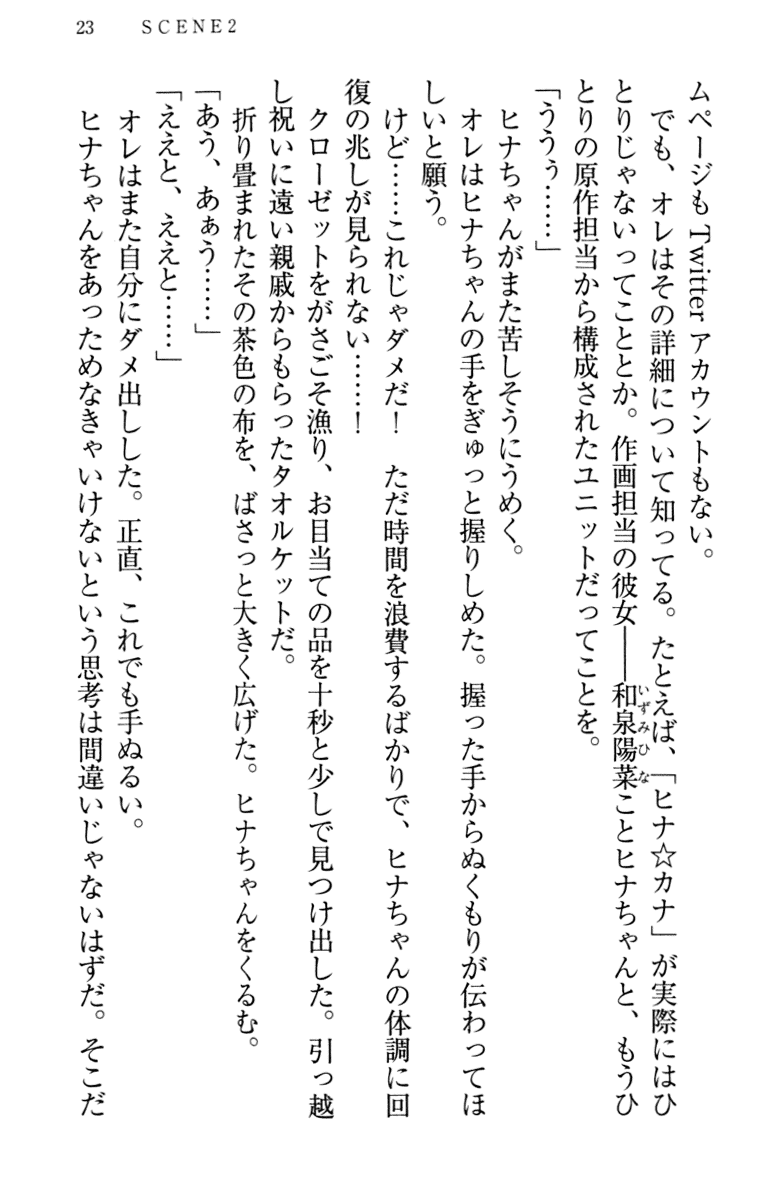 23 SCENE2
ムページも Twitter アカウントもない。
でも、オレはその詳細について知ってる。たとえば、「ヒナ☆カナ」が実際にはひ
とりじゃないってこととか。作画担当の彼女――和泉陽菜ことヒナちゃんと、もうひ
いずみひな
とりの原作担当から構成されたユニットだってことを。
「ううぅ……」
ヒナちゃんがまた苦しそうにうめく。
オレはヒナちゃんの手をぎゅっと握りしめた。握った手からぬくもりが伝わってほ
しいと願う。
けど……これじゃダメだ！　ただ時間を浪費するばかりで、ヒナちゃんの体調に回
復の兆しが見られない……！
クローゼットをがさごそ漁り、お目当ての品を十秒と少しで見つけ出した。引っ越
し祝いに遠い親戚からもらったタオルケットだ。
折り畳まれたその茶色の布を、ばさっと大きく広げた。ヒナちゃんをくるむ。
「あう、あぁう……」
「ええと、ええと……」
オレはまた自分にダメ出しした。正直、これでも手ぬるい。
ヒナちゃんをあっためなきゃいけないという思考は間違いじゃないはずだ。そこだ